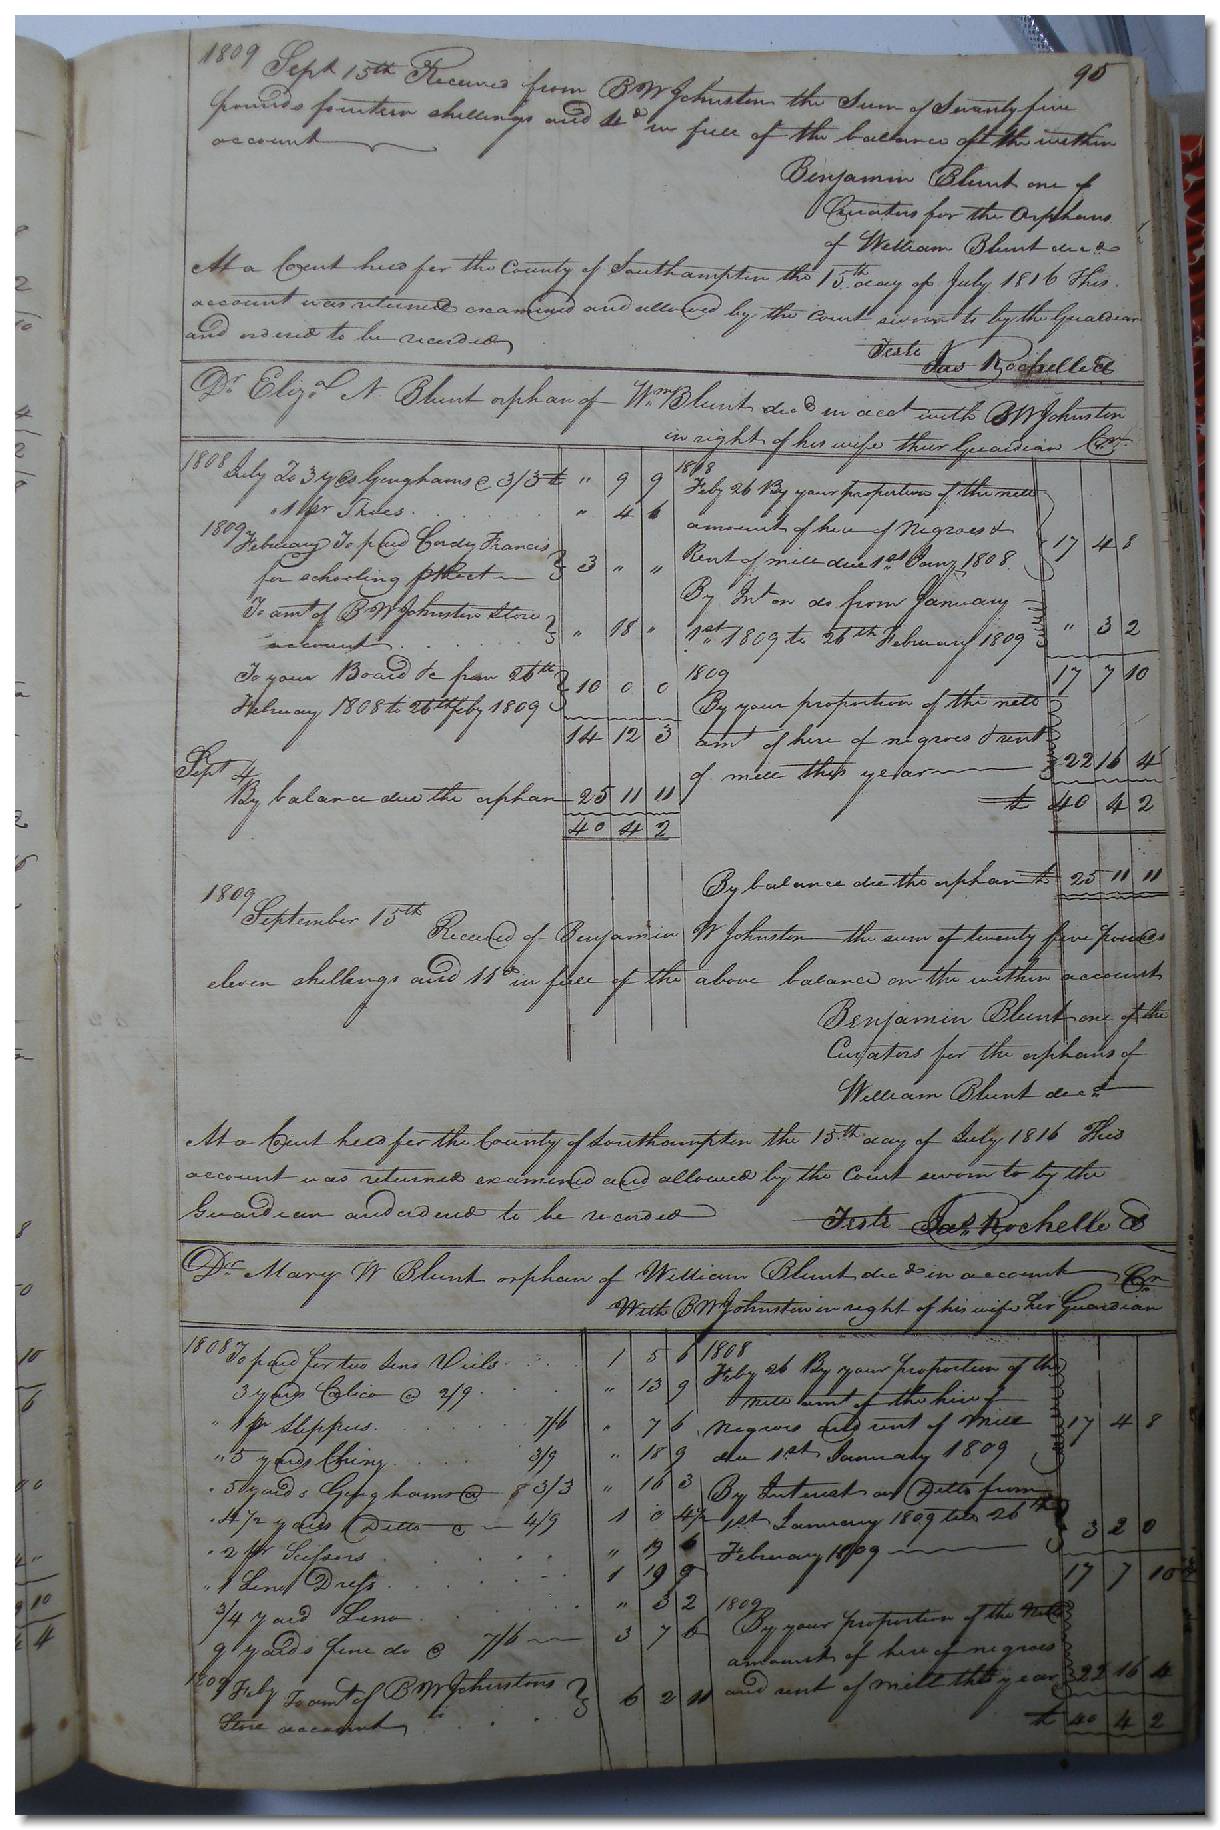 95
1809 Sept 15th Received from B W Johnston the Sum of Twenty five
pounds fourteen shellings and 4d in full of the balance of the within
account
Benjamin Blunt one of
Curators for the Orphans
of William Blunt decd
At a Court held for the County of Southampton the 15th day of July 1816 This
account was returned examined and allowed by the Court sworn to by the Guardian
and ordered to be recorded
Teste
Jas Rochelle Cl
Dr Elizath N. Blunt orphan of Wm Blunt decd in acct with B W Johnston
in right of his wife their Guardian Cr
1808 July To 3 yds Ginghams @ 3/3 £ " 9 9
1 pr Shoes " 4 6
1809 February To paid Cordy Francis
for schooling 3 " "
To amt of B W Johnston Store
account " 18 "
To your Board &c from 26th
February 1808 to 26th feby 1809 10 0 0
14 12 3
Sept 4
By balance due the orphan 25 11 11
40 4 2
1808
Feby 26 By your proportion of the nett
amount of hire of Negroes &
Rent of mill due 1st Jany 1808. 17 4 8
By Int on do from January
1st 1809 to 26th February 1809 " 3 2
17 7 10
1809
By your proportion of the nett
amt of hire of negroes & rent
of mill this year 22 16 4
£ 40 4 2
By balance due the orphan £ 25 11 11
1809
September 15th Received of Benjamin W Johnston the sum of twenty five pounds
eleven shellings and 11d in full of the above balance on the within account
Benjamin Blunt one of the
Curators for the orphans of
William Blunt decd
At a Court held for the County of Southampton the 15th day of July 1816 This
account was returned examined and allowed by the Court sworn to by the
Guardian and ordered to be recorded
Teste Jas Rochelle Cl
Dr Mary W Blunt orphan of William Blunt decd in account Cr
With B W Johnston in right of his wife her Guardian
1808 To paid for two Leno Veils 1 5 6
3 yards Calico @ 2/9 " 13 9
" 1 pr Slippers 7/6 " 7 6
" 5 yards 3/9 " 18 9
" 5 yards Ginghams @ 3/3 " 16 3
" 4 1/2 yards Ditto @ 4/9 1 0 4 1/2
" 2 pr Scissors " 19 6
" 1 Leno Dress 1 19 9
3/4 yard Leno " 3 2
9 yards fine do @ 7/6 3 7 6
1809 Feby To amt of B W Johnstons
Store account 6 2 11
1808
Feby 26 By your proportion of the
nett amt of the hire of
negroes and rent of mill
due 1st January 1809 17 4 8
By Interest on Ditto from
1st January 1809 till 26th
February 1809 3 2 0
17 7 10
1809
By your proportion of the nett
amount of hire of negroes
and rent of mill this year 22 16 4
£ 40 4 2